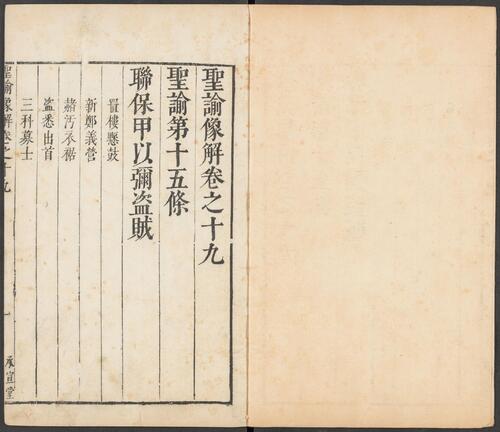 聖諭像解卷之十九
聖諭第十五條
聯保甲以彌盜賊
置樓懸鼓
新鄭義營
赭汚衣裾
盗悉出首
三科募士
聖諭像解卷之十九
一
承宣堂